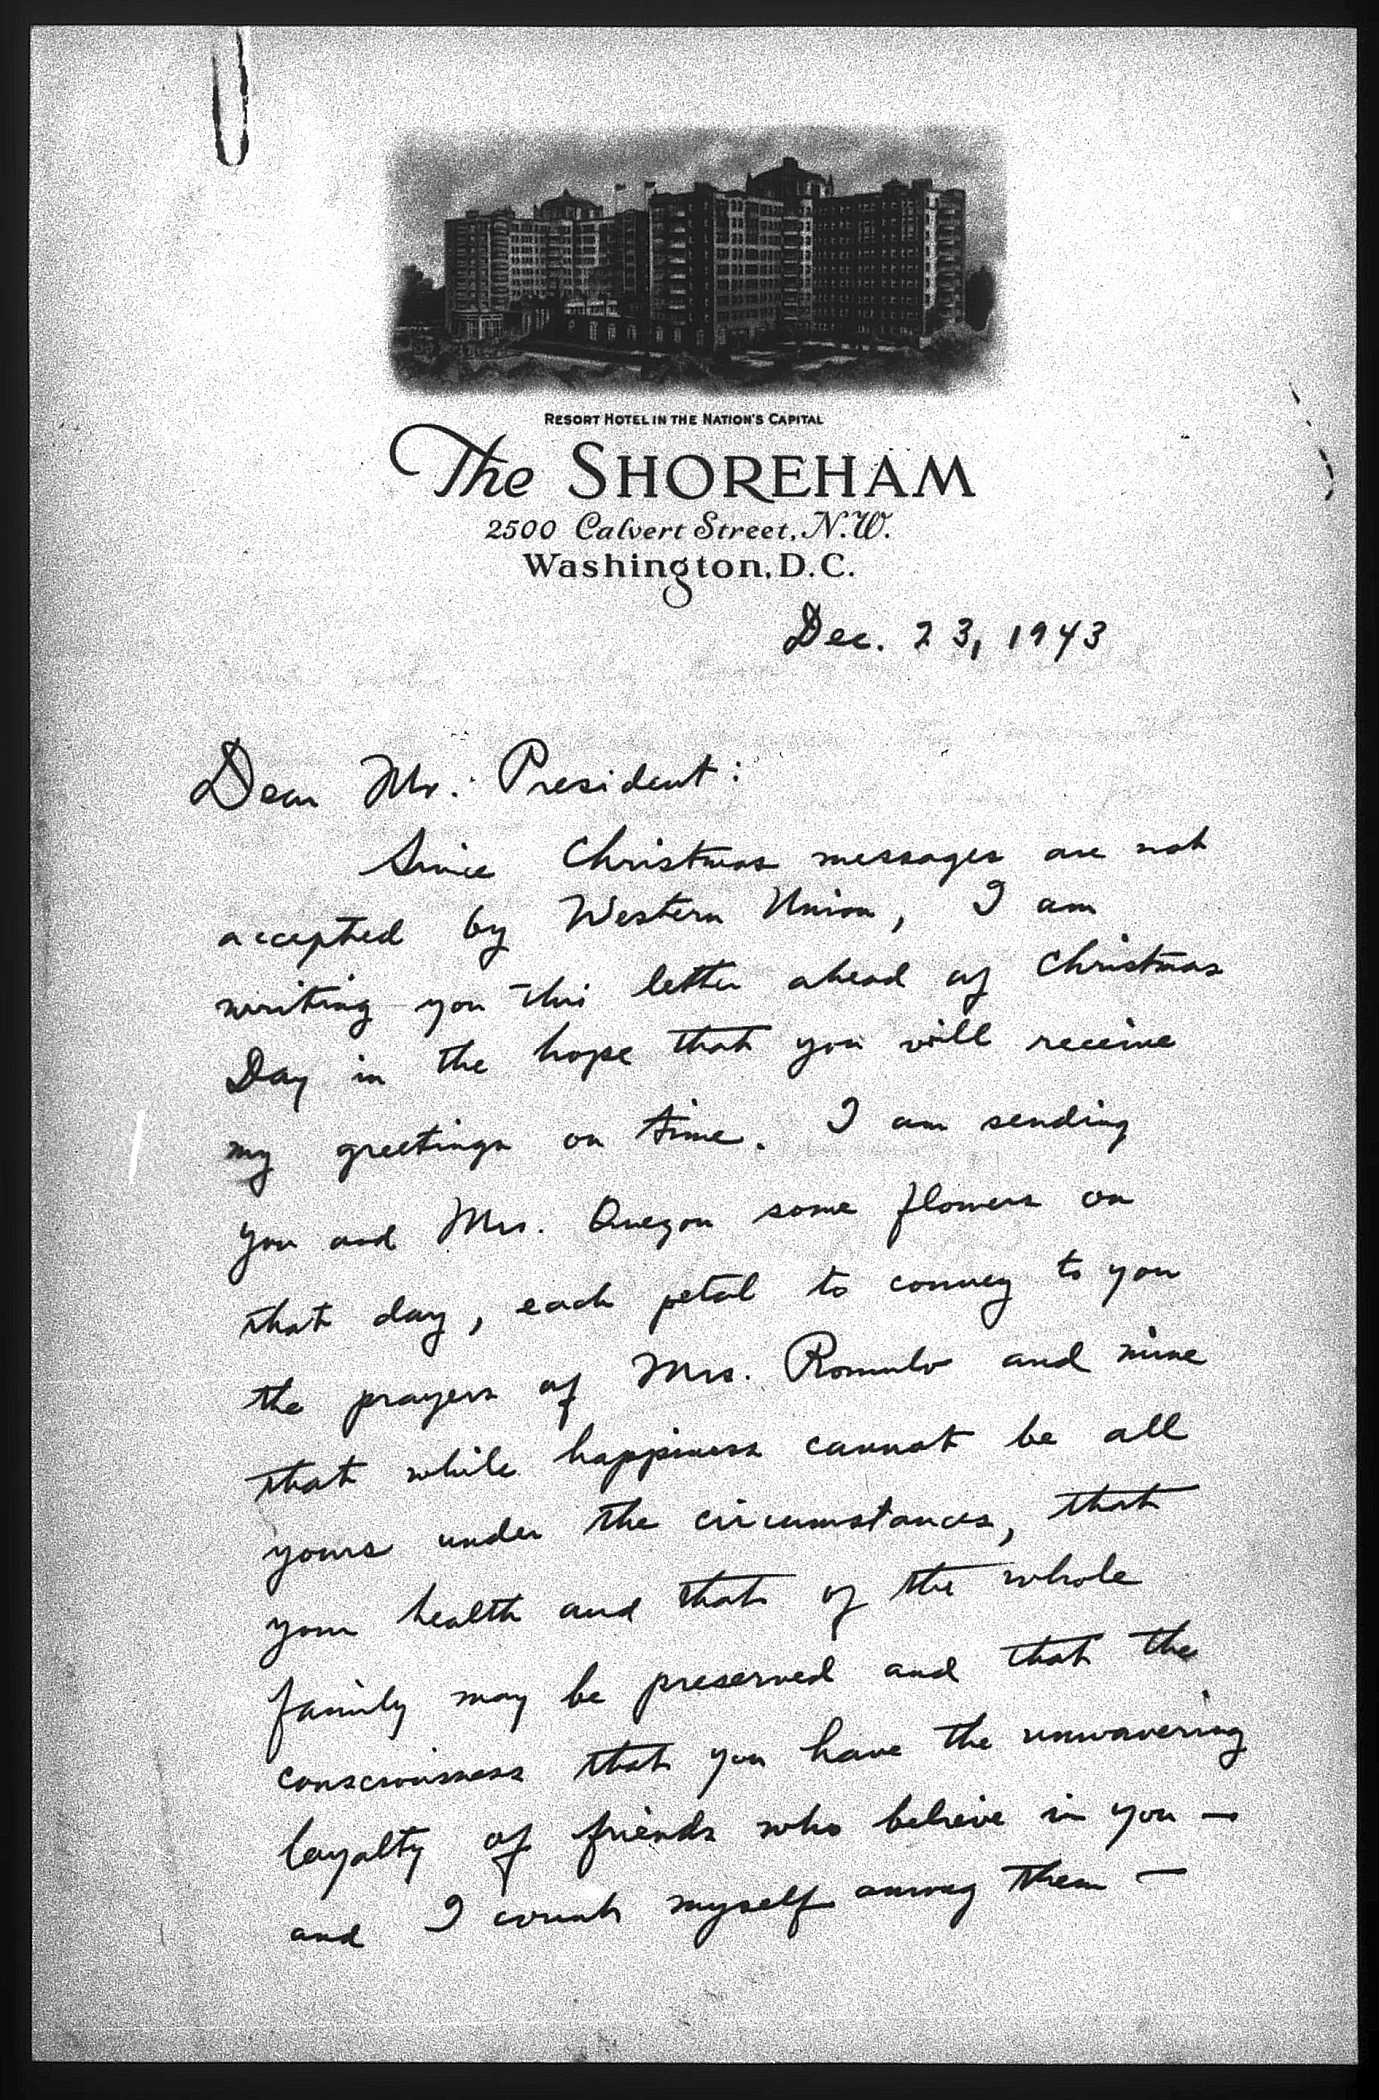 RESORT HOTEL IN THE NATION'S CAPITAL
The SHOREHAM
2500 Calvert Street, N.W.
Washington, D.C.
Dec. 23, 1943
Dear Mr. President:
Since Christmas messages are not
accepted by Western Union, I am
writing you this letter ahead of Christmas
Day in the hope that you will receive
my greetings on time. I am sending
you and Mrs. Quezon some flowers on
that day, each petal to convey to you
the prayers of Mrs. Romulo and mine
that while happiness cannot be all
yours under the circumstances, that
your health and that of the whole
family may be preserved and that the
consciousness that you have the unwavering
loyalty of friends who believe in you —
and I count myself among them —